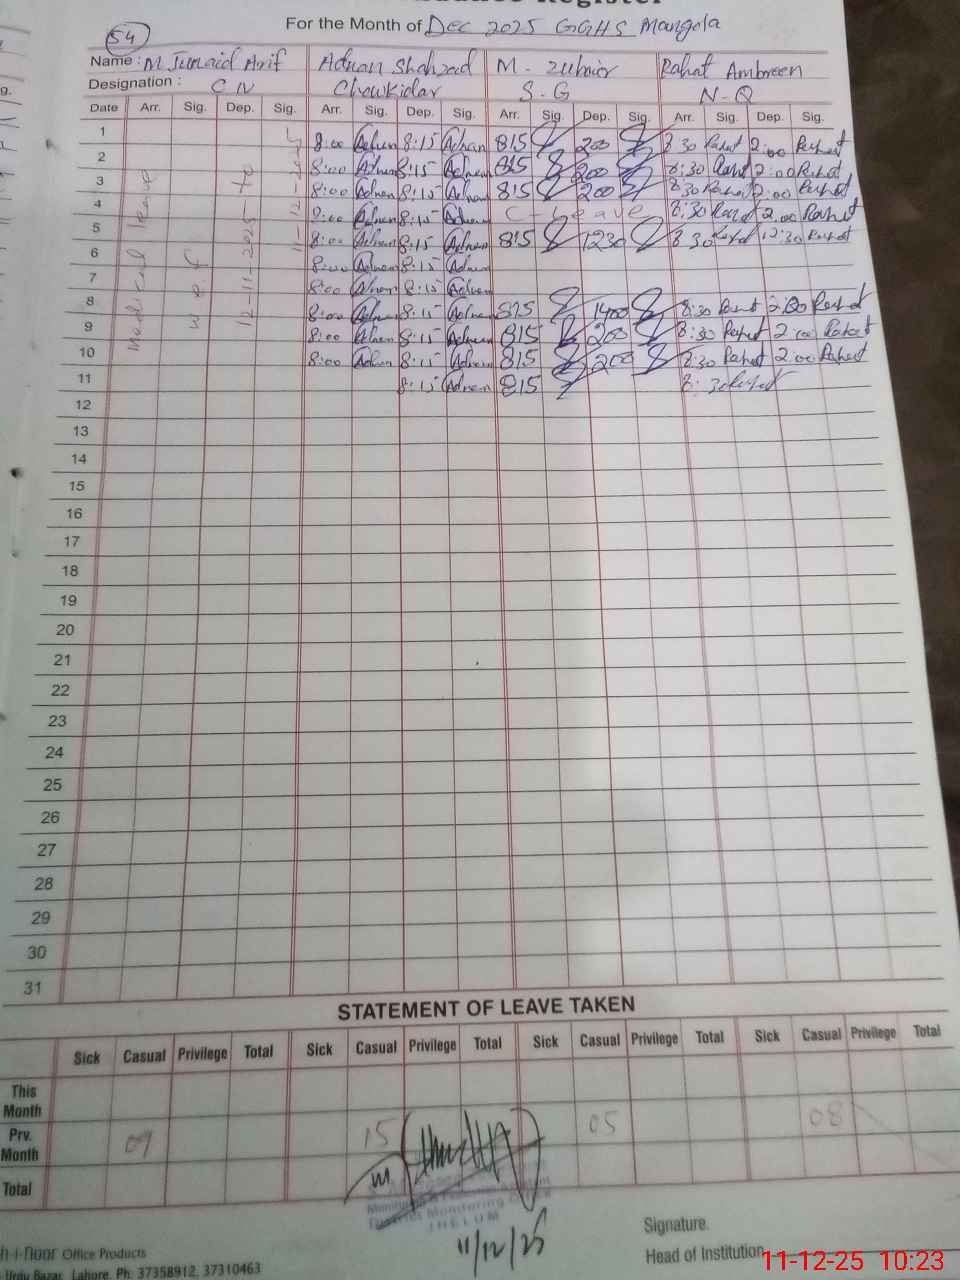 For the Month of Dec 2025 GGHS Mangola
54
Name : M Junaid Arif Adnan Shahzad M. Zuhair Rahat Ambreen
Designation : C N Chowkidar S.G N-Q
Date Arr. Sig. Dep. Sig. Arr. Sig. Dep. Sig. Arr. Sig. Dep. Sig. Arr. Sig. Dep. Sig.
Medical leave
w e f
12-11-2025 to
11-12-2025
1 8:00 Adnan 8:15 Adnan 815 200 8:30 Rahat 2:00 Rahat
2 8:00 Adnan 8:15 Adnan 815 200 8:30 Rahat 2:00 Rahat
3 8:00 Adnan 8:15 Adnan 815 200 8:30 Rahat 2:00 Rahat
4 8:00 Adnan 8:15 Adnan C-Leave 8:30 Rahat 2:00 Rahat
5 8:00 Adnan 8:15 Adnan 815 1230 8:30 Rahat 12:30 Rahat
6 8:00 Adnan 8:15 Adnan
7 8:00 Adnan 8:15 Adnan
8 8:00 Adnan 8:15 Adnan 825 1400 8:30 Rahat 2:00 Rahat
9 8:00 Adnan 8:15 Adnan 815 200 8:30 Rahat 2:00 Rahat
10 8:00 Adnan 8:15 Adnan 815 200 8:30 Rahat 2:00 Rahat
11 8:15 Adnan 815 8:30 Rahat
12
13
14
15
16
17
18
19
20
21
22
23
24
25
26
27
28
29
30
31
STATEMENT OF LEAVE TAKEN
Sick Casual Privilege Total Sick Casual Privilege Total Sick Casual Privilege Total Sick Casual Privilege Total
This Month
Prv. Month 09 15 05 08
Total
District Monitoring
JHELUM
11/12/25
Signature.
Head of Institution
Office Products
Urdu Bazar, Lahore. Ph: 37358912, 37310463
11-12-25 10:23